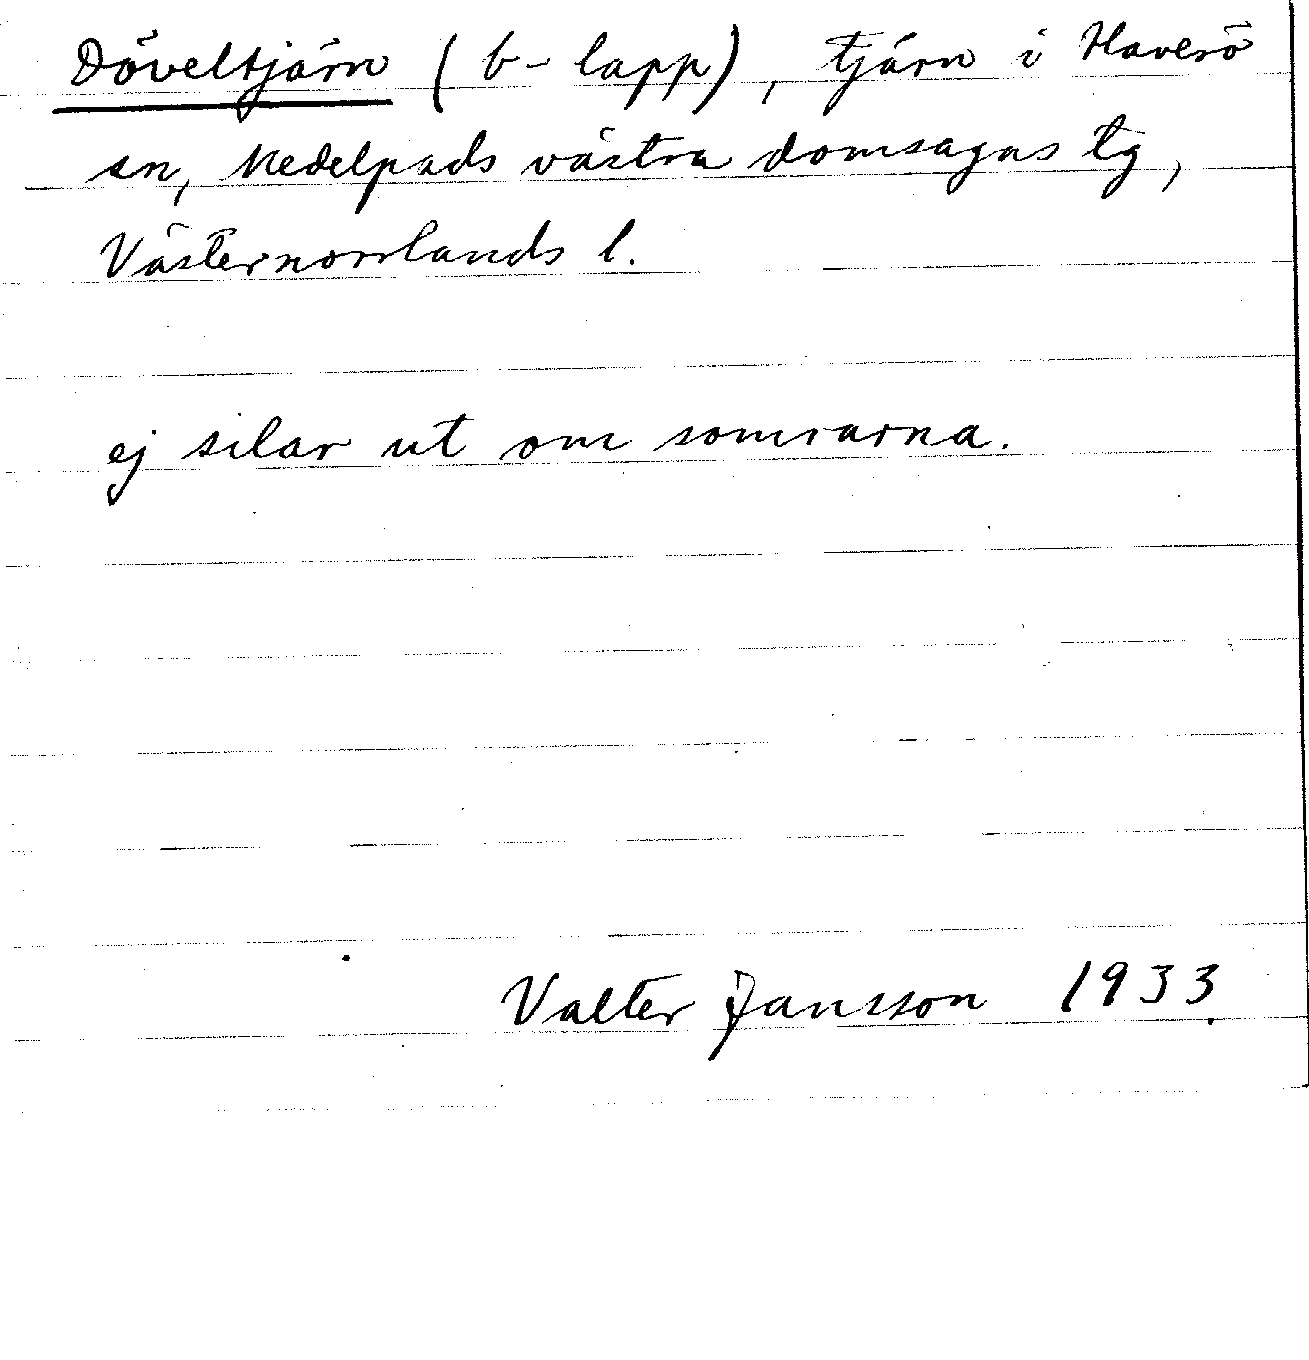 Döveltjärn (b-lapp), tjärn i Haverö
sn, Medelpads västra domsagas tg,
Västernorrlands l.
ej silar ut om somrarna.
Valter Jansson 1933.